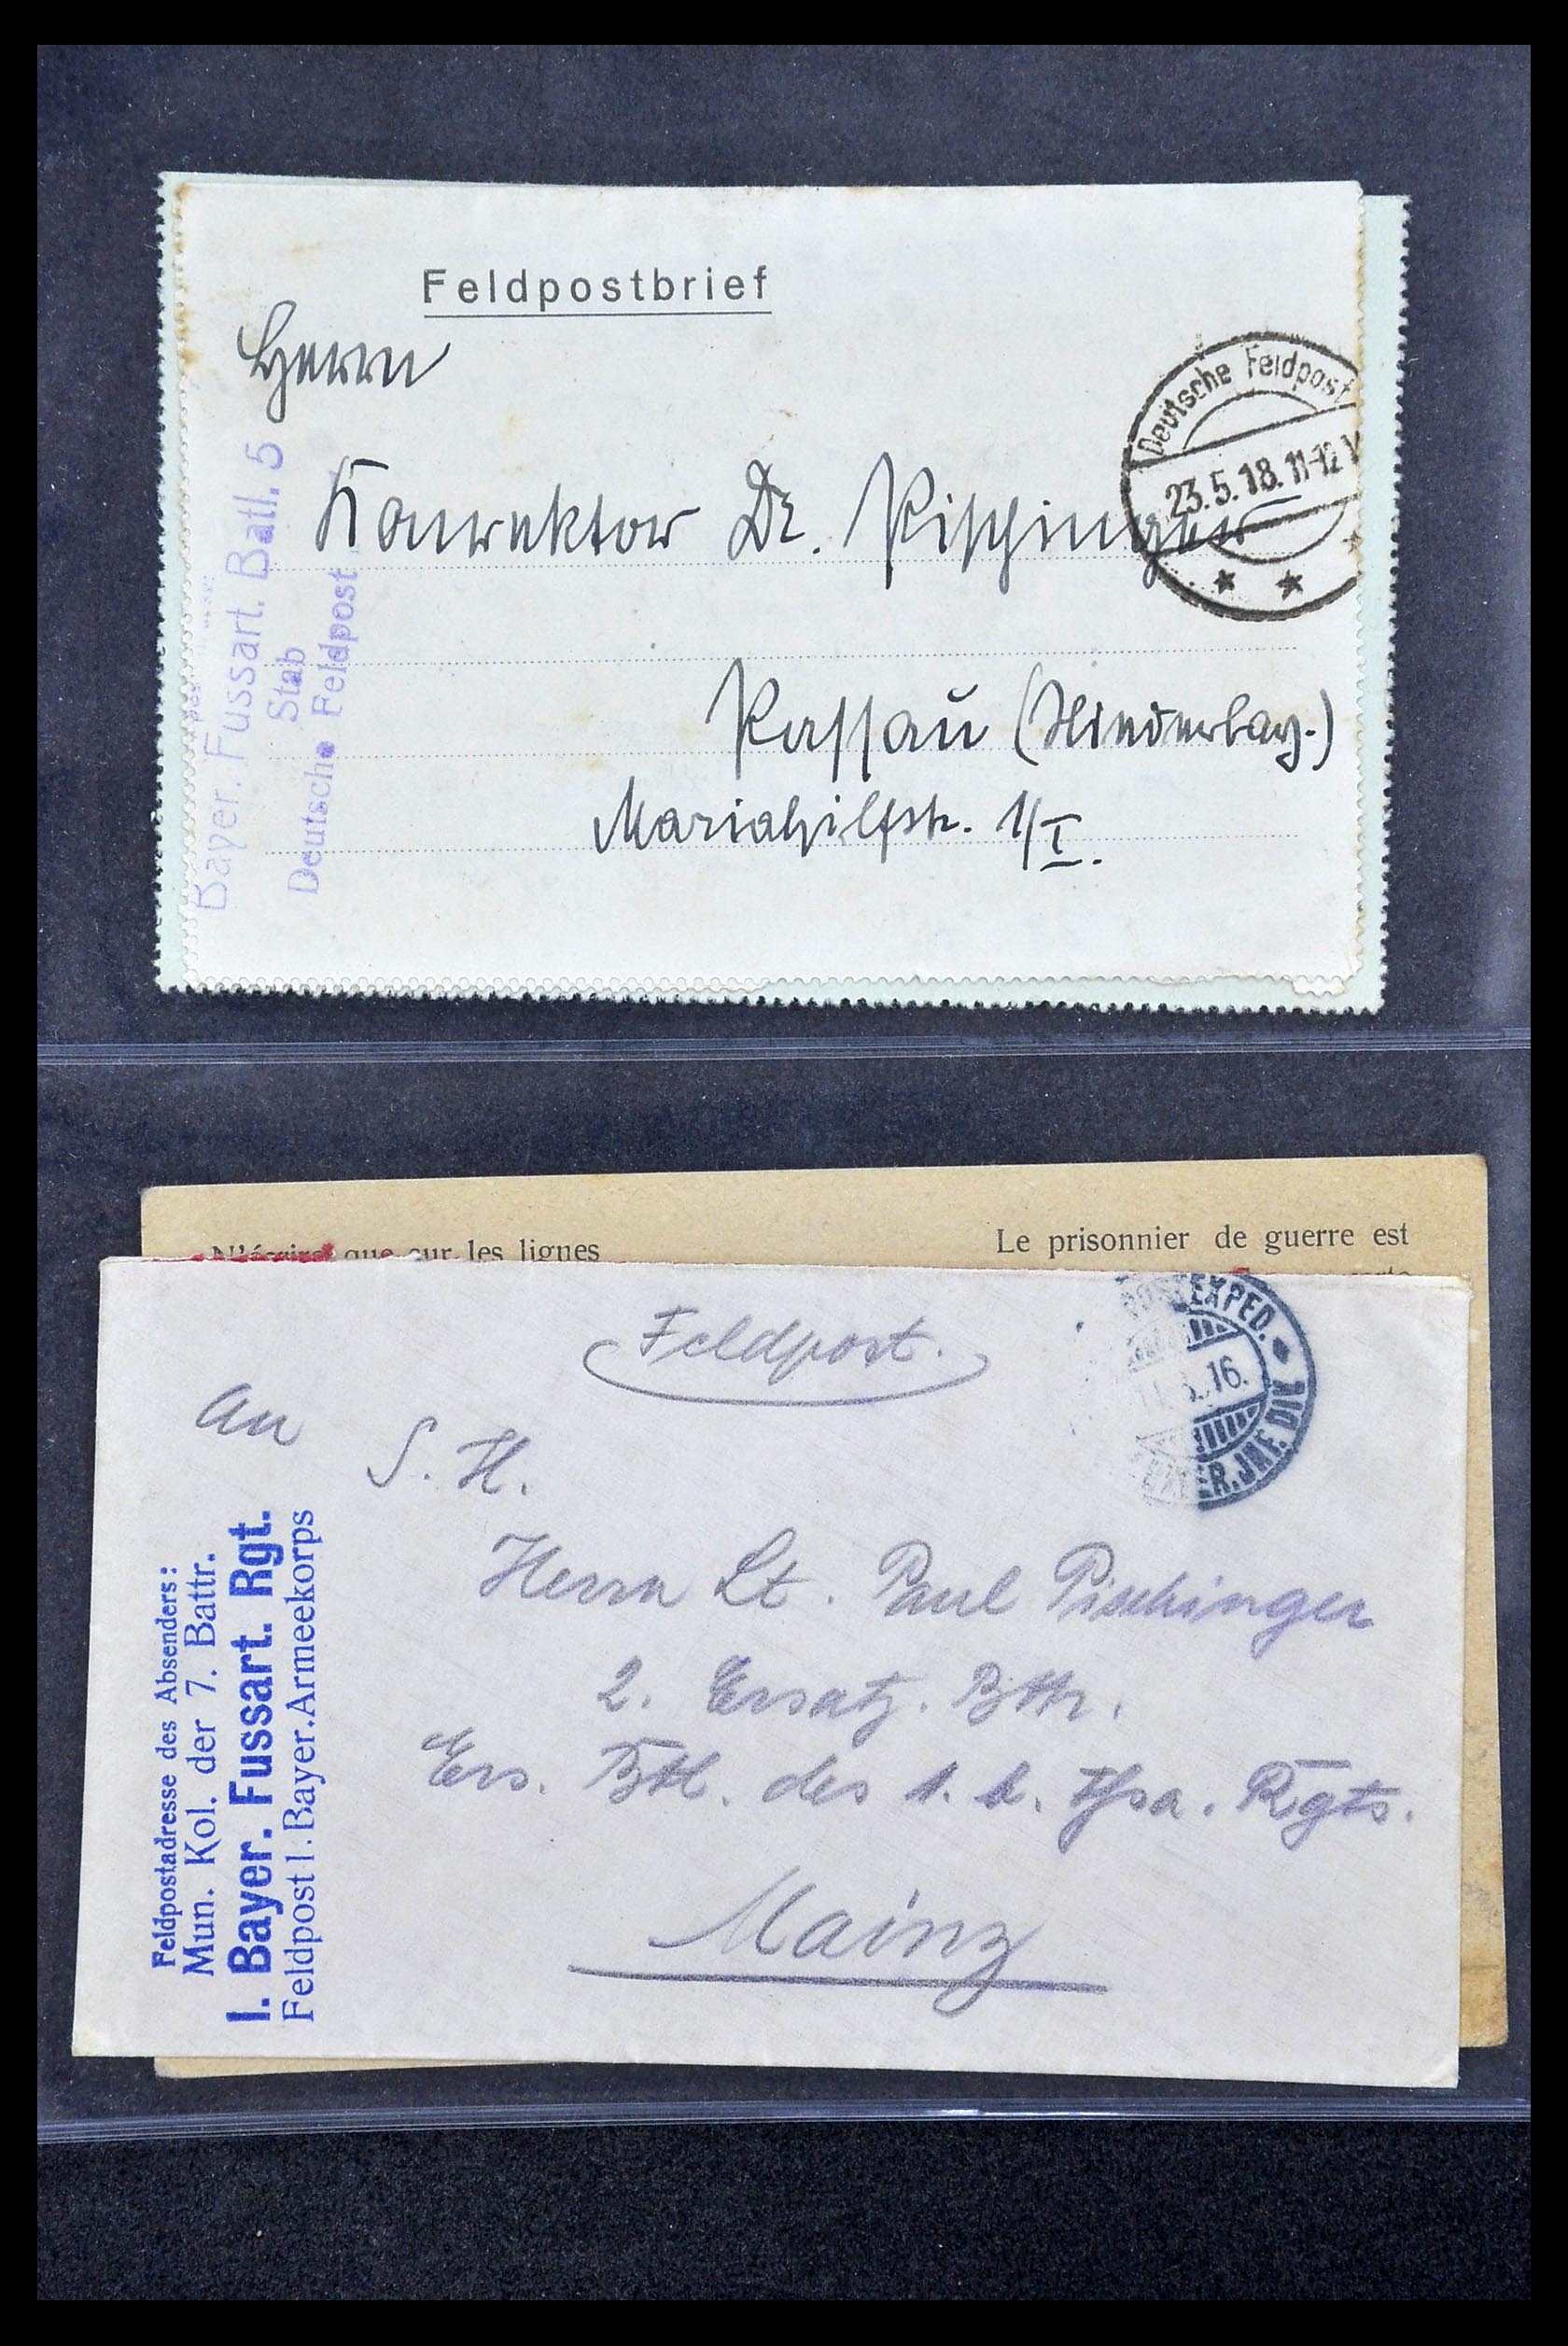 Feldpostbrief
Herrn
Konrektor Dr. Pischinger
Passau (Niederbay.)
Mariahilfstr. 1/I.
Bayer. Fussart. Batl. 5
Stab
Deutsche Feldpost
Deutsche Feldpost
23.5.18. 11-12 V
N'écrire que sur les lignes
Le prisonnier de guerre est
Feldpost.
POSTEXPED.
16.
BAYER. JNF. DIV
An
S. H.
Herrn Lt. Paul Pischinger
2. Ersatz. Bttr.
Ers. Btl. des 1. b. Fssa. Rgts.
Mainz
Feldpostadresse des Absenders:
Mun. Kol. der 7. Battr.
I. Bayer. Fussart. Rgt.
Feldpost I. Bayer. Armeekorps